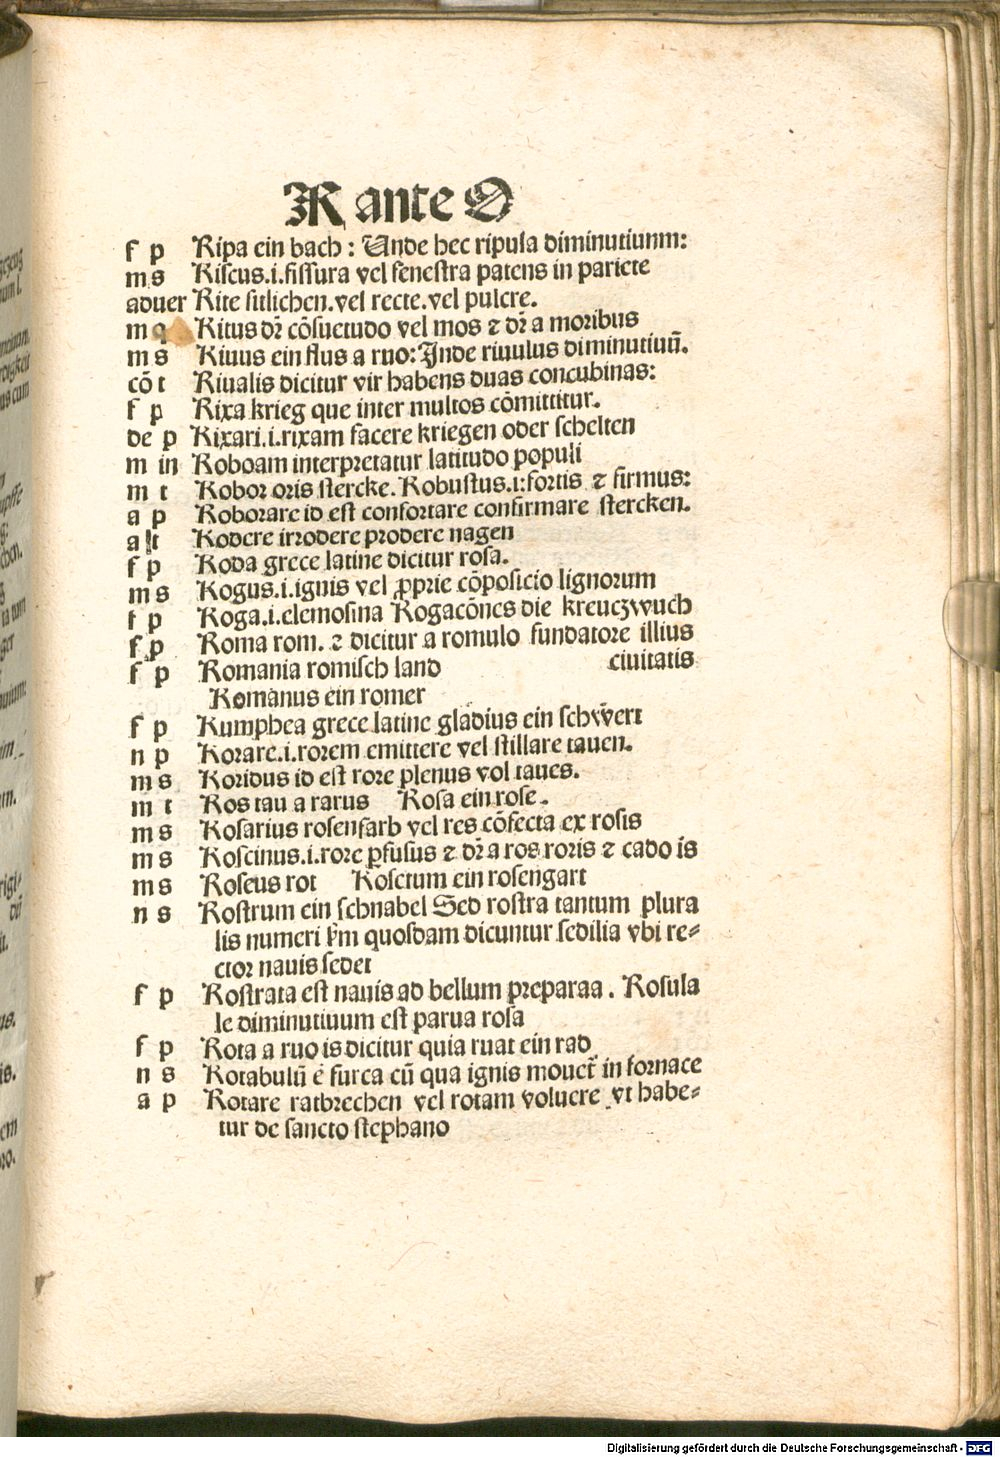 R ante O
f p Ripa ein bach : Unde hec ripula diminutiunm:
m s Riscus.i.fissura vel fenestra patens in pariete
aduer Rite sitlichen.vel recte.vel pulcre.
m q Ritus dr̄ cōsuetudo vel mos ⁊ dr̄ a moribus
m s Riuus ein flus a ruo: Inde riuulus diminutiuū.
cō t Riualis dicitur vir habens duas concubinas:
f p Rixa krieg que inter multos cōmittitur.
de p Rixari.i.rixam facere kriegen oder schelten
m in Roboam interpretatur latitudo populi
m t Robor oris stercke. Robustus.i:fortis ⁊ firmus:
a p Roborare id est confortare confirmare stercken.
a lt Rodere irrodere prodere nagen
f p Roda grece latine dicitur rosa.
m s Rogus.i.ignis vel ꝓprie cōposicio lignorum
f p Roga.i.elemosina Rogacōnes die kreuczwuch
f p Roma rom. ⁊ dicitur a romulo fundatore illius
f p Romania romisch land ciuitatis
Romanus ein romer
f p Rumphea grece latine gladius ein schwert
n p Rorare.i.rorem emittere vel stillare tauen.
m s Roridus id est rore plenus vol taues.
m t Ros tau a rarus Rosa ein rose.
m s Rosarius rosenfarb vel res cōfecta ex rosis
m s Roscinus.i.rore ꝑfusus ⁊ dr̄ a ros roris ⁊ cado is
m s Roseus rot Rosetum ein rosengart
n s Rostrum ein schnabel Sed rostra tantum plura
lis numeri k̄m quosdam dicuntur sedilia vbi re⸗
ctor nauis sedet
f p Rostrata est nauis ad bellum preparaa . Rosula
le diminutiuum est parua rosa
f p Rota a ruo is dicitur quia ruat ein rad
n s Rotabulū ē furca cū qua ignis mouet̄ in fornace
a p Rotare ratbrechen vel rotam voluere vt habe⸗
tur de sancto stephano
Digitalisierung gefördert durch die Deutsche Forschungsgemeinschaft - DFG